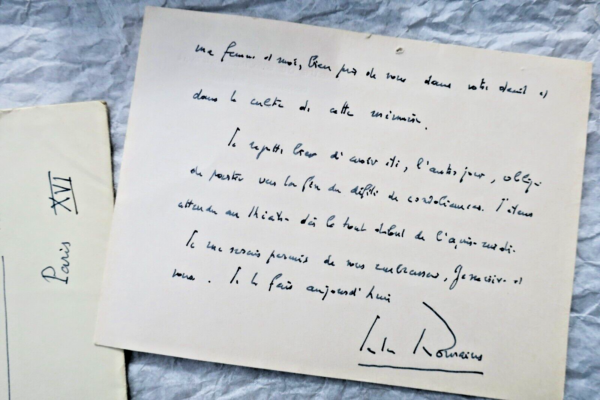 ma femme et moi, bien près de vous dans votre deuil et
dans le culte de cette mémoire.
Je regrette bien d'avoir été, l'autre jour, obligé
de partir vers la fin du défilé de condoléances. J'étais
attendu au théâtre dès le tout début de l'après-midi.
Je me serais permis de vous embrasser, Geneviève et
vous. Je le fais aujourd'hui
Jules Romains
Paris XVI